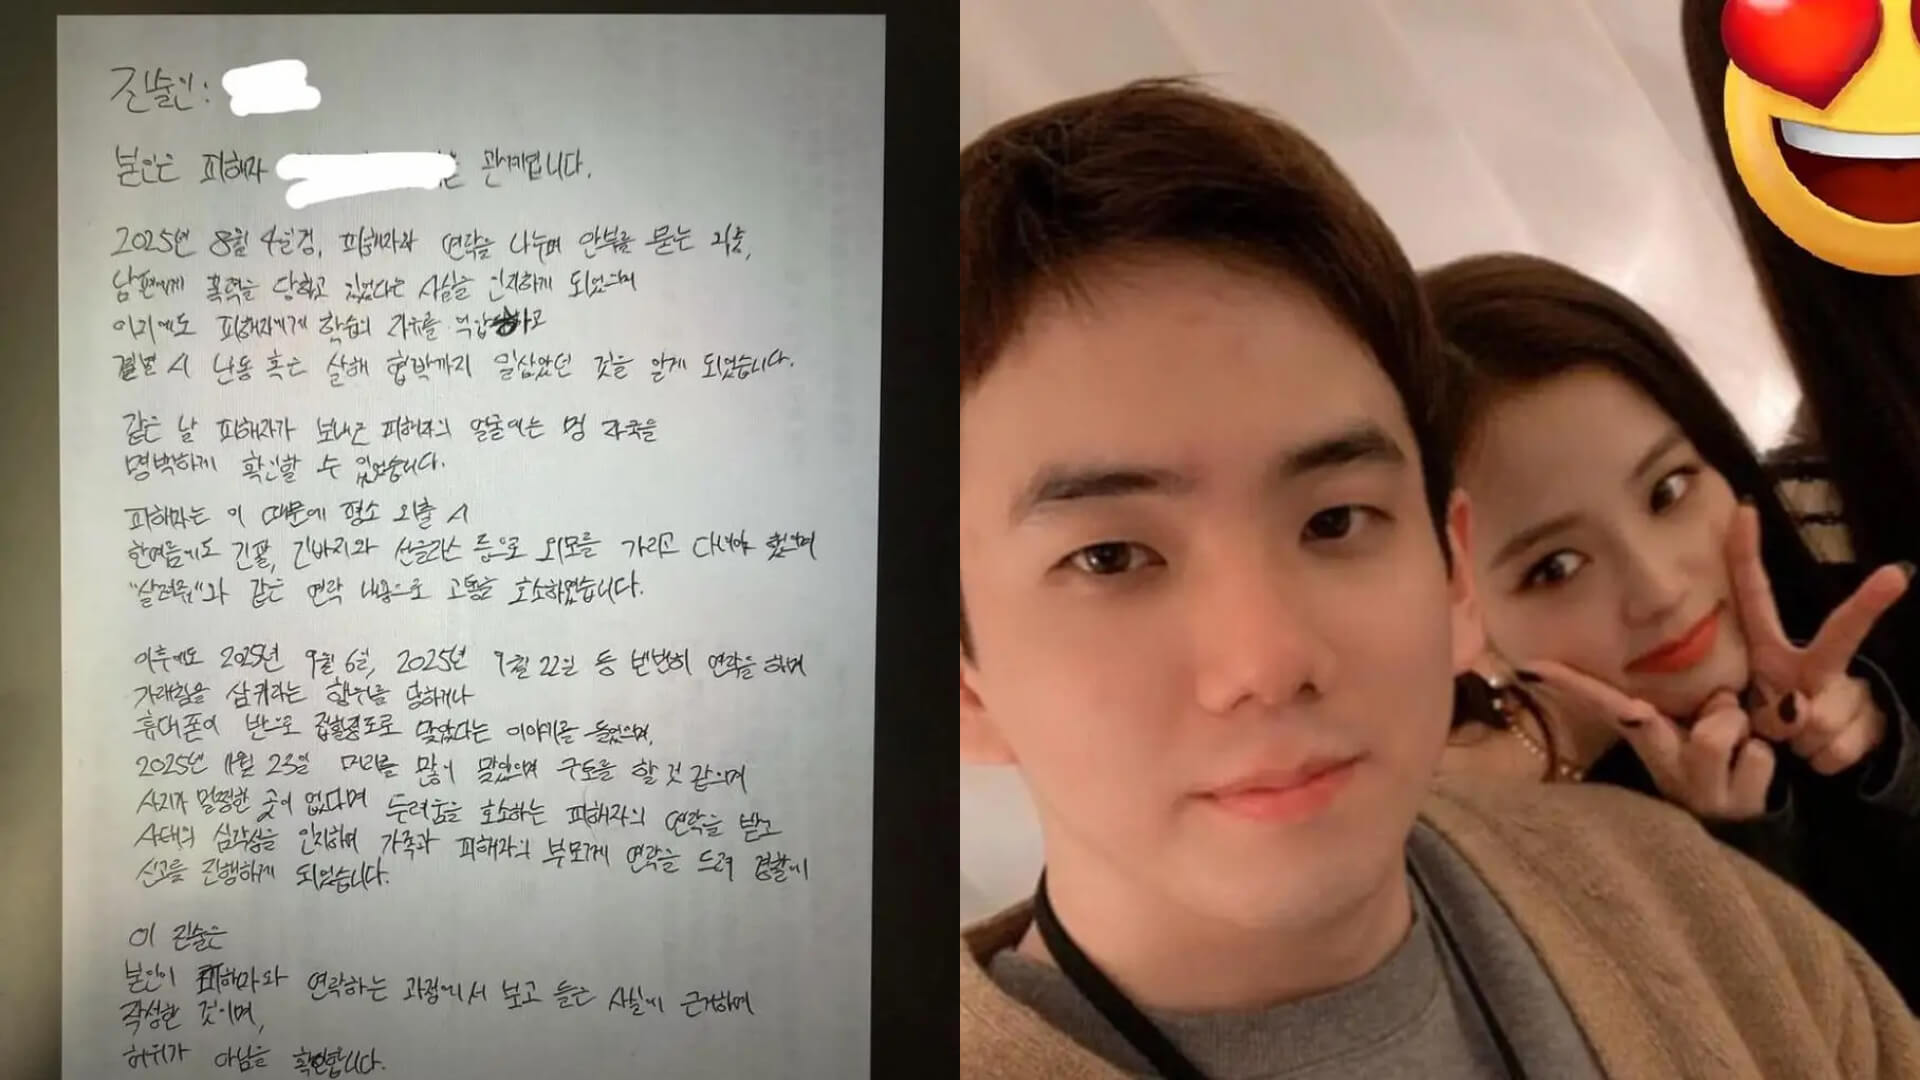 진술인:
본인은 피해자 는 관계입니다.
2025년 8월 4일경, 피해자와 연락을 나누며 안부를 묻는 와중,
남편에게 폭력을 당하고 있었다는 사실을 인지하게 되었으며
이외에도 피해자에게 학습의 자유를 억압하고
결별 시 난동 혹은 살해 협박까지 일삼았던 것을 알게 되었습니다.
같은 날 피해자가 보내온 피해자의 얼굴에는 멍 자국을
명백하게 확인할 수 있었습니다.
피해자는 이 때문에 평소 외출 시
한여름에도 긴팔, 긴바지와 선글라스 등으로 외모를 가리고 다녀야 했으며
"살려줘"와 같은 연락 내용으로 고통을 호소하였습니다.
이후에도 2025년 9월 6일, 2025년 9월 22일 등 빈번히 연락을 하며
가래침을 삼키라는 행위를 당하거나
휴대폰이 반으로 접힐정도로 맞았다는 이야기를 들었으며,
2025년 11월 23일 머리를 많이 맞았으며 구토를 할 것 같으며
사지가 멀쩡한 곳이 없다며 두려움을 호소하는 피해자의 연락을 받고
사태의 심각성을 인지하여 가족과 피해자의 부모께 연락을 드려 경찰에
신고를 진행하게 되었습니다.
이 진술은
본인이 피해자와 연락하는 과정에서 보고 들은 사실에 근거하여
작성한 것이며,
허위가 아님을 확인합니다.